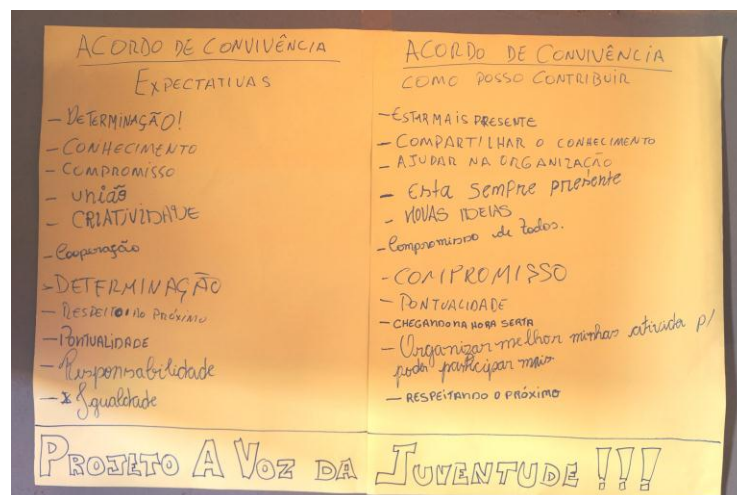 ACORDO DE CONVIVÊNCIA
EXPECTATIVAS
- DETERMINAÇÃO!
- CONHECIMENTO
- COMPROMISSO
- união
- CRIATIVIDADE
- Cooperação
- DETERMINAÇÃO
- RESPEITO AO PRÓXIMO
- PONTUALIDADE
- Responsabilidade
- Igualdade
ACORDO DE CONVIVÊNCIA
COMO POSSO CONTRIBUIR
- ESTAR MAIS PRESENTE
- COMPARTILHAR O CONHECIMENTO
- AJUDAR NA ORGANIZAÇÃO
- Esta sempre presente
- NOVAS IDEIAS
- Compromisso de todos.
- COMPROMISSO
- PONTUALIDADE
- CHEGANDO NA HORA SERTA
- Organizar melhor minhas p/
poder participar mais
- RESPEITANDO O PRÓXIMO
PROJETO A VOZ DA JUVENTUDE !!!